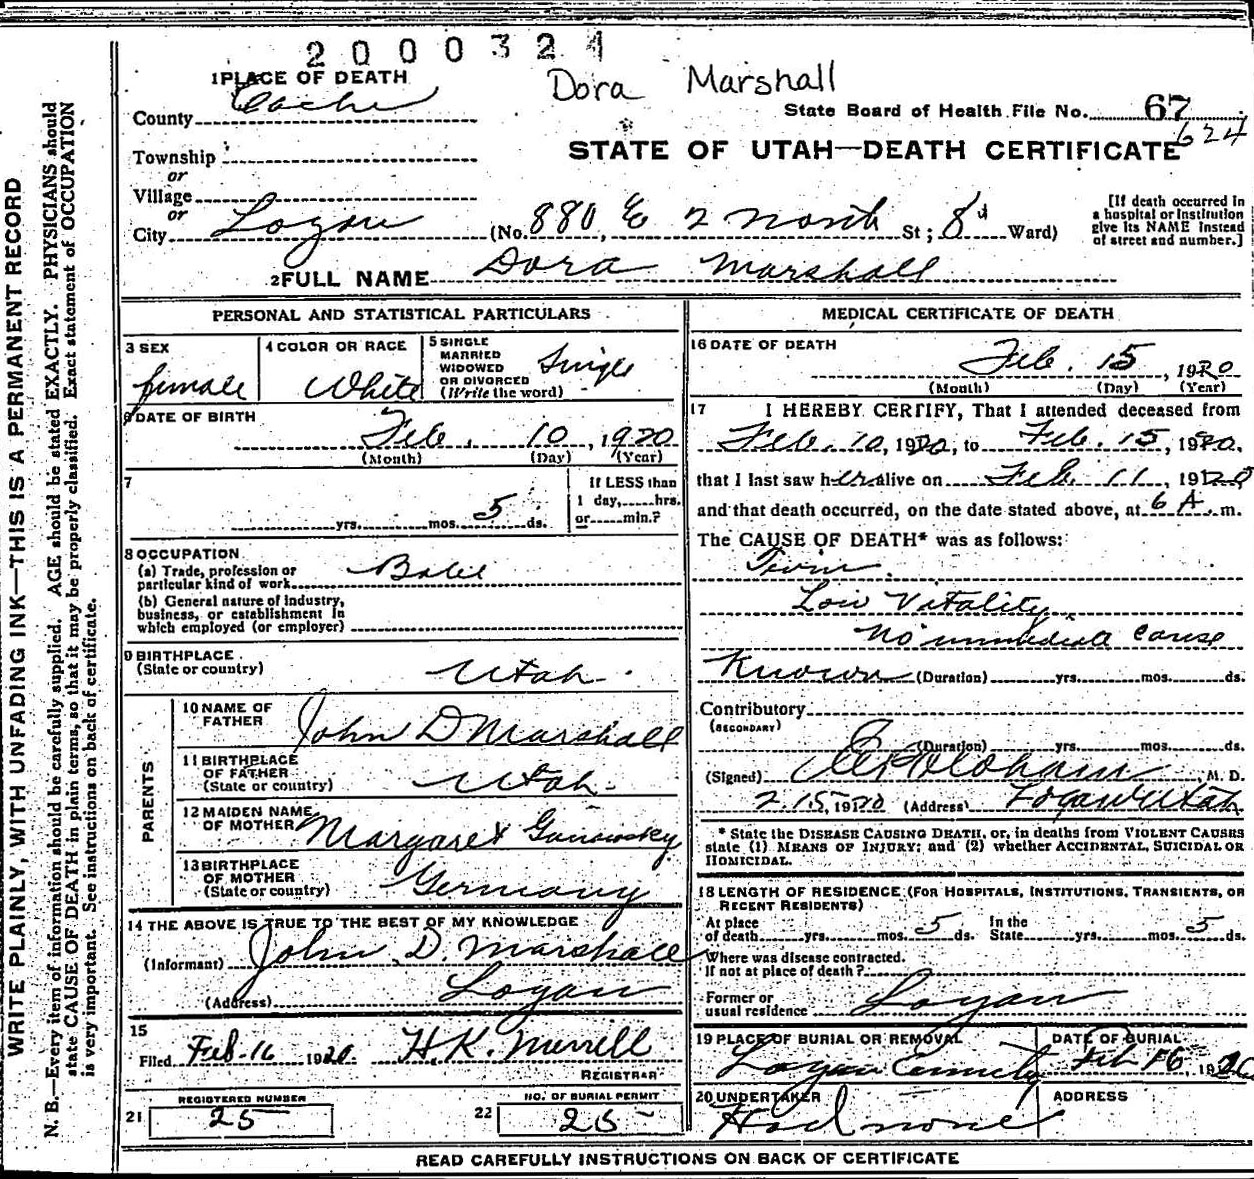 2000321
1 PLACE OF DEATH
Dora Marshall
County Cache
State Board of Health File No. 67
624
Township
or
STATE OF UTAH—DEATH CERTIFICATE
Village
or
City Logan (No. 880 E 2 North St; 8th Ward)
[If death occurred in
a hospital or institution
give its NAME instead
of street and number.]
2 FULL NAME Dora Marshall
PERSONAL AND STATISTICAL PARTICULARS
3 SEX
female
4 COLOR OR RACE
White
5 SINGLE
MARRIED
WIDOWED
OR DIVORCED
(Write the word)
Single
6 DATE OF BIRTH
Feb. 10, 1920
(Month) (Day) (Year)
7
yrs. mos. 5 ds.
If LESS than
1 day, hrs.
or min.?
8 OCCUPATION
(a) Trade, profession or
particular kind of work
(b) General nature of industry,
business, or establishment in
which employed (or employer)
9 BIRTHPLACE
(State or country)
Utah
PARENTS
10 NAME OF
FATHER
John D Marshall
11 BIRTHPLACE
OF FATHER
(State or country)
Utah
12 MAIDEN NAME
OF MOTHER
Margaret
13 BIRTHPLACE
OF MOTHER
(State or country)
Germany
14 THE ABOVE IS TRUE TO THE BEST OF MY KNOWLEDGE
(Informant) John D. Marshall
(Address) Logan
15
Filed Feb-16 1920 H.K. Merrell
REGISTRAR
REGISTERED NUMBER
21 25
NO. OF BURIAL PERMIT
22 25
MEDICAL CERTIFICATE OF DEATH
16 DATE OF DEATH
Feb. 15, 1920
(Month) (Day) (Year)
17 I HEREBY CERTIFY, That I attended deceased from
Feb. 10, 1920, to Feb. 15, 1920,
that I last saw her alive on Feb 11, 1920,
and that death occurred, on the date stated above, at 6 A. m.
The CAUSE OF DEATH* was as follows:
Twin
Low Vitality
No immediate cause
Known (Duration) yrs. mos. ds.
Contributory
(SECONDARY)
(Duration) yrs. mos. ds.
(Signed) M. D.
2.15, 1920 (Address) Logan Utah
* State the DISEASE CAUSING DEATH, or, in deaths from VIOLENT CAUSES
state (1) MEANS OF INJURY; and (2) whether ACCIDENTAL, SUICIDAL OR
HOMICIDAL.
18 LENGTH OF RESIDENCE (FOR HOSPITALS, INSTITUTIONS, TRANSIENTS, OR
RECENT RESIDENTS)
At place
of death yrs. mos. 5 ds.
In the
State yrs. mos. 5 ds.
Where was disease contracted.
If not at place of death?
Former or
usual residence Logan
19 PLACE OF BURIAL OR REMOVAL
Logan Cemetery
DATE OF BURIAL
Feb 16, 1920
20 UNDERTAKER
Had none
ADDRESS
READ CAREFULLY INSTRUCTIONS ON BACK OF CERTIFICATE
WRITE PLAINLY, WITH UNFADING INK—THIS IS A PERMANENT RECORD
N. B.—Every item of information should be carefully supplied. AGE should be stated EXACTLY. PHYSICIANS should
state CAUSE OF DEATH in plain terms, so that it may be properly classified. Exact statement of OCCUPATION
is very important. See instructions on back of certificate.